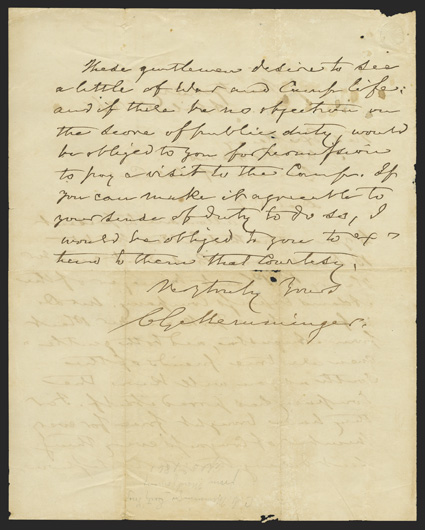 These gentlemen desire to see
a little of War and Camp life;
and if there be no objection on
the score of public duty, would
be obliged to you for permission
to pay a visit to the Camp. If
you can make it agreeable to
your sense of duty to do so, I
would be obliged to you to ex=
tend to them that courtesy.
Very truly Yours
C G Memminger.